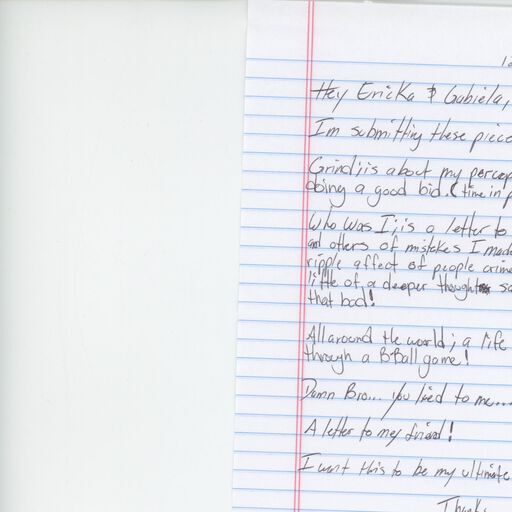 Hey Ericka & Gabiela,
Im submitting these piece
Grind; is about my percep
doing a good bid. (time in p
Who Was I; is a letter to
and others of mistakes I made
ripple affect of people crime
little of a deeper thought so
that bad!
All around the world; a life
through a BBall game!
Damn Bro... you lied to me...
A letter to my friend!
I want this to be my ultimate
Thanks